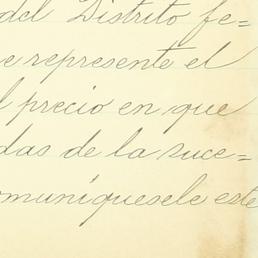 del Distrito fe=
e represente el
l precio en que
das de la suce=
omuníquesele este